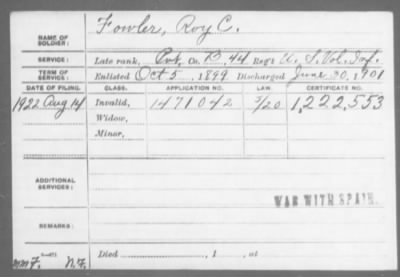 NAME OF SOLDIER: Fowler, Roy C.
SERVICE: Late rank, Pvt, Co. B, 44 Reg't U. S. Vol. Inf.
TERM OF SERVICE: Enlisted Oct 5, 1899 Discharged June 30, 1901
DATE OF FILING. CLASS. APPLICATION NO. LAW. CERTIFICATE NO.
1922 Aug 14 Invalid, 1471042 3/20 1,222,553
Widow,
Minor,
ADDITIONAL SERVICES:
WAR WITH SPAIN.
REMARKS:
Died , 1 , at